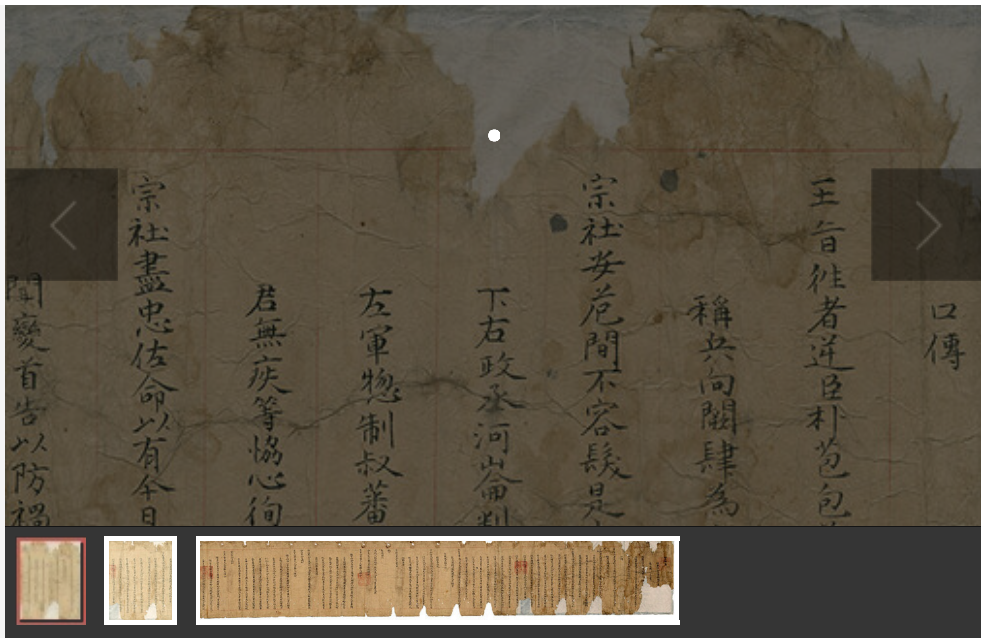 口傳
王旨徃者逆臣朴苞包
稱兵向闕肆為
宗社安危間不容髮是
下右政丞河崙判
左軍摠制叔蕃
君無疾等恊心徇
宗社盡忠佐命以有今日
聞變首告以防禍